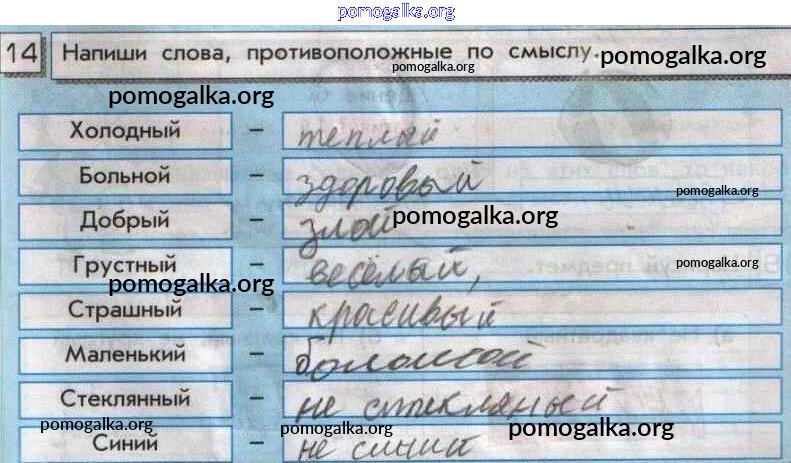 pomogalka.org
14 Напиши слова, противоположные по смыслу.
pomogalka.org
pomogalka.org
pomogalka.org
Холодный – теплый
Больной – здоровый
pomogalka.org
Добрый – злой
pomogalka.org
Грустный – весёлый,
pomogalka.org
pomogalka.org
Страшный – красивый
Маленький – большой
Стеклянный – не стекляный
pomogalka.org
pomogalka.org
pomogalka.org
Синий – не синий